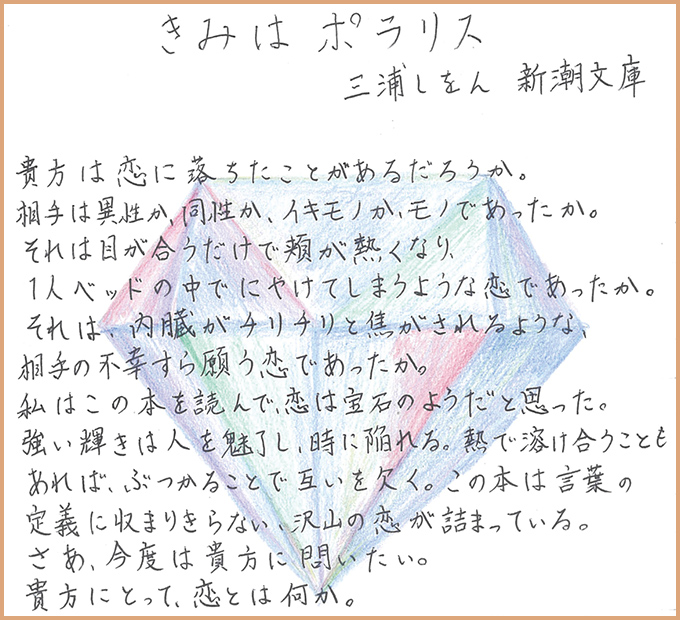 きみは ポラリス
三浦しをん 新潮文庫
貴方は恋に落ちたことがあるだろうか。
相手は異性か、同性か、イキモノか、モノであったか。
それは目が合うだけで頬が熱くなり、
1人ベッドの中でにやけてしまうような恋であったか。
それは、内臓がチリチリと焦がされるような、
相手の不幸すら願う恋であったか。
私はこの本を読んで、恋は宝石のようだと思った。
強い輝きは人を魅了し、時に陥れる。熱で溶け合うことも
あれば、ぶつかることで互いを欠く。この本は言葉の
定義に収まりきらない、沢山の恋が詰まっている。
さあ、今度は貴方に問いたい。
貴方にとって、恋とは何か。